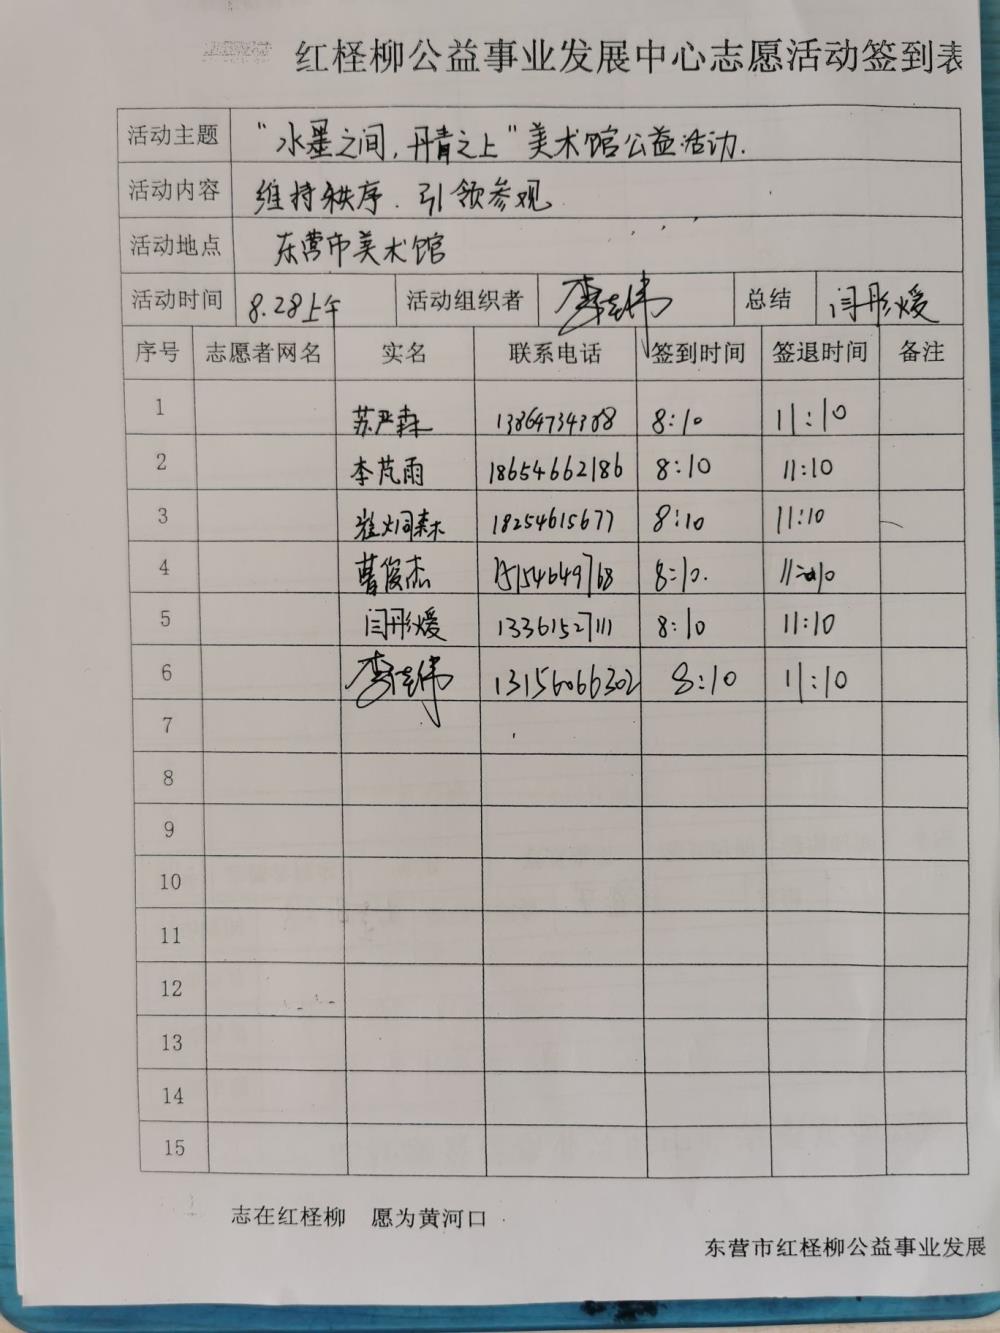 红柽柳公益事业发展中心志愿活动签到表
活动主题 "水墨之间,丹青之上"美术馆公益活动.
活动内容 维持秩序.引领参观
活动地点 东营市美术馆
活动时间 8.28上午 活动组织者 李佳伟 总结 闫彤煖
序号 志愿者网名 实名 联系电话 签到时间 签退时间 备注
1 苏严森 8:10 11:10
2 李芃雨 18654662186 8:10 11:10
3 崔炯森 18254615677 8:10 11:10
4 曹俊杰 15154649768 8:10. 11:10
5 闫彤煖 13361527111 8:10 11:10
6 李佳伟 13156066302 8:10 11:10
7
8
9
10
11
12
13
14
15
志在红柽柳 愿为黄河口
东营市红柽柳公益事业发展